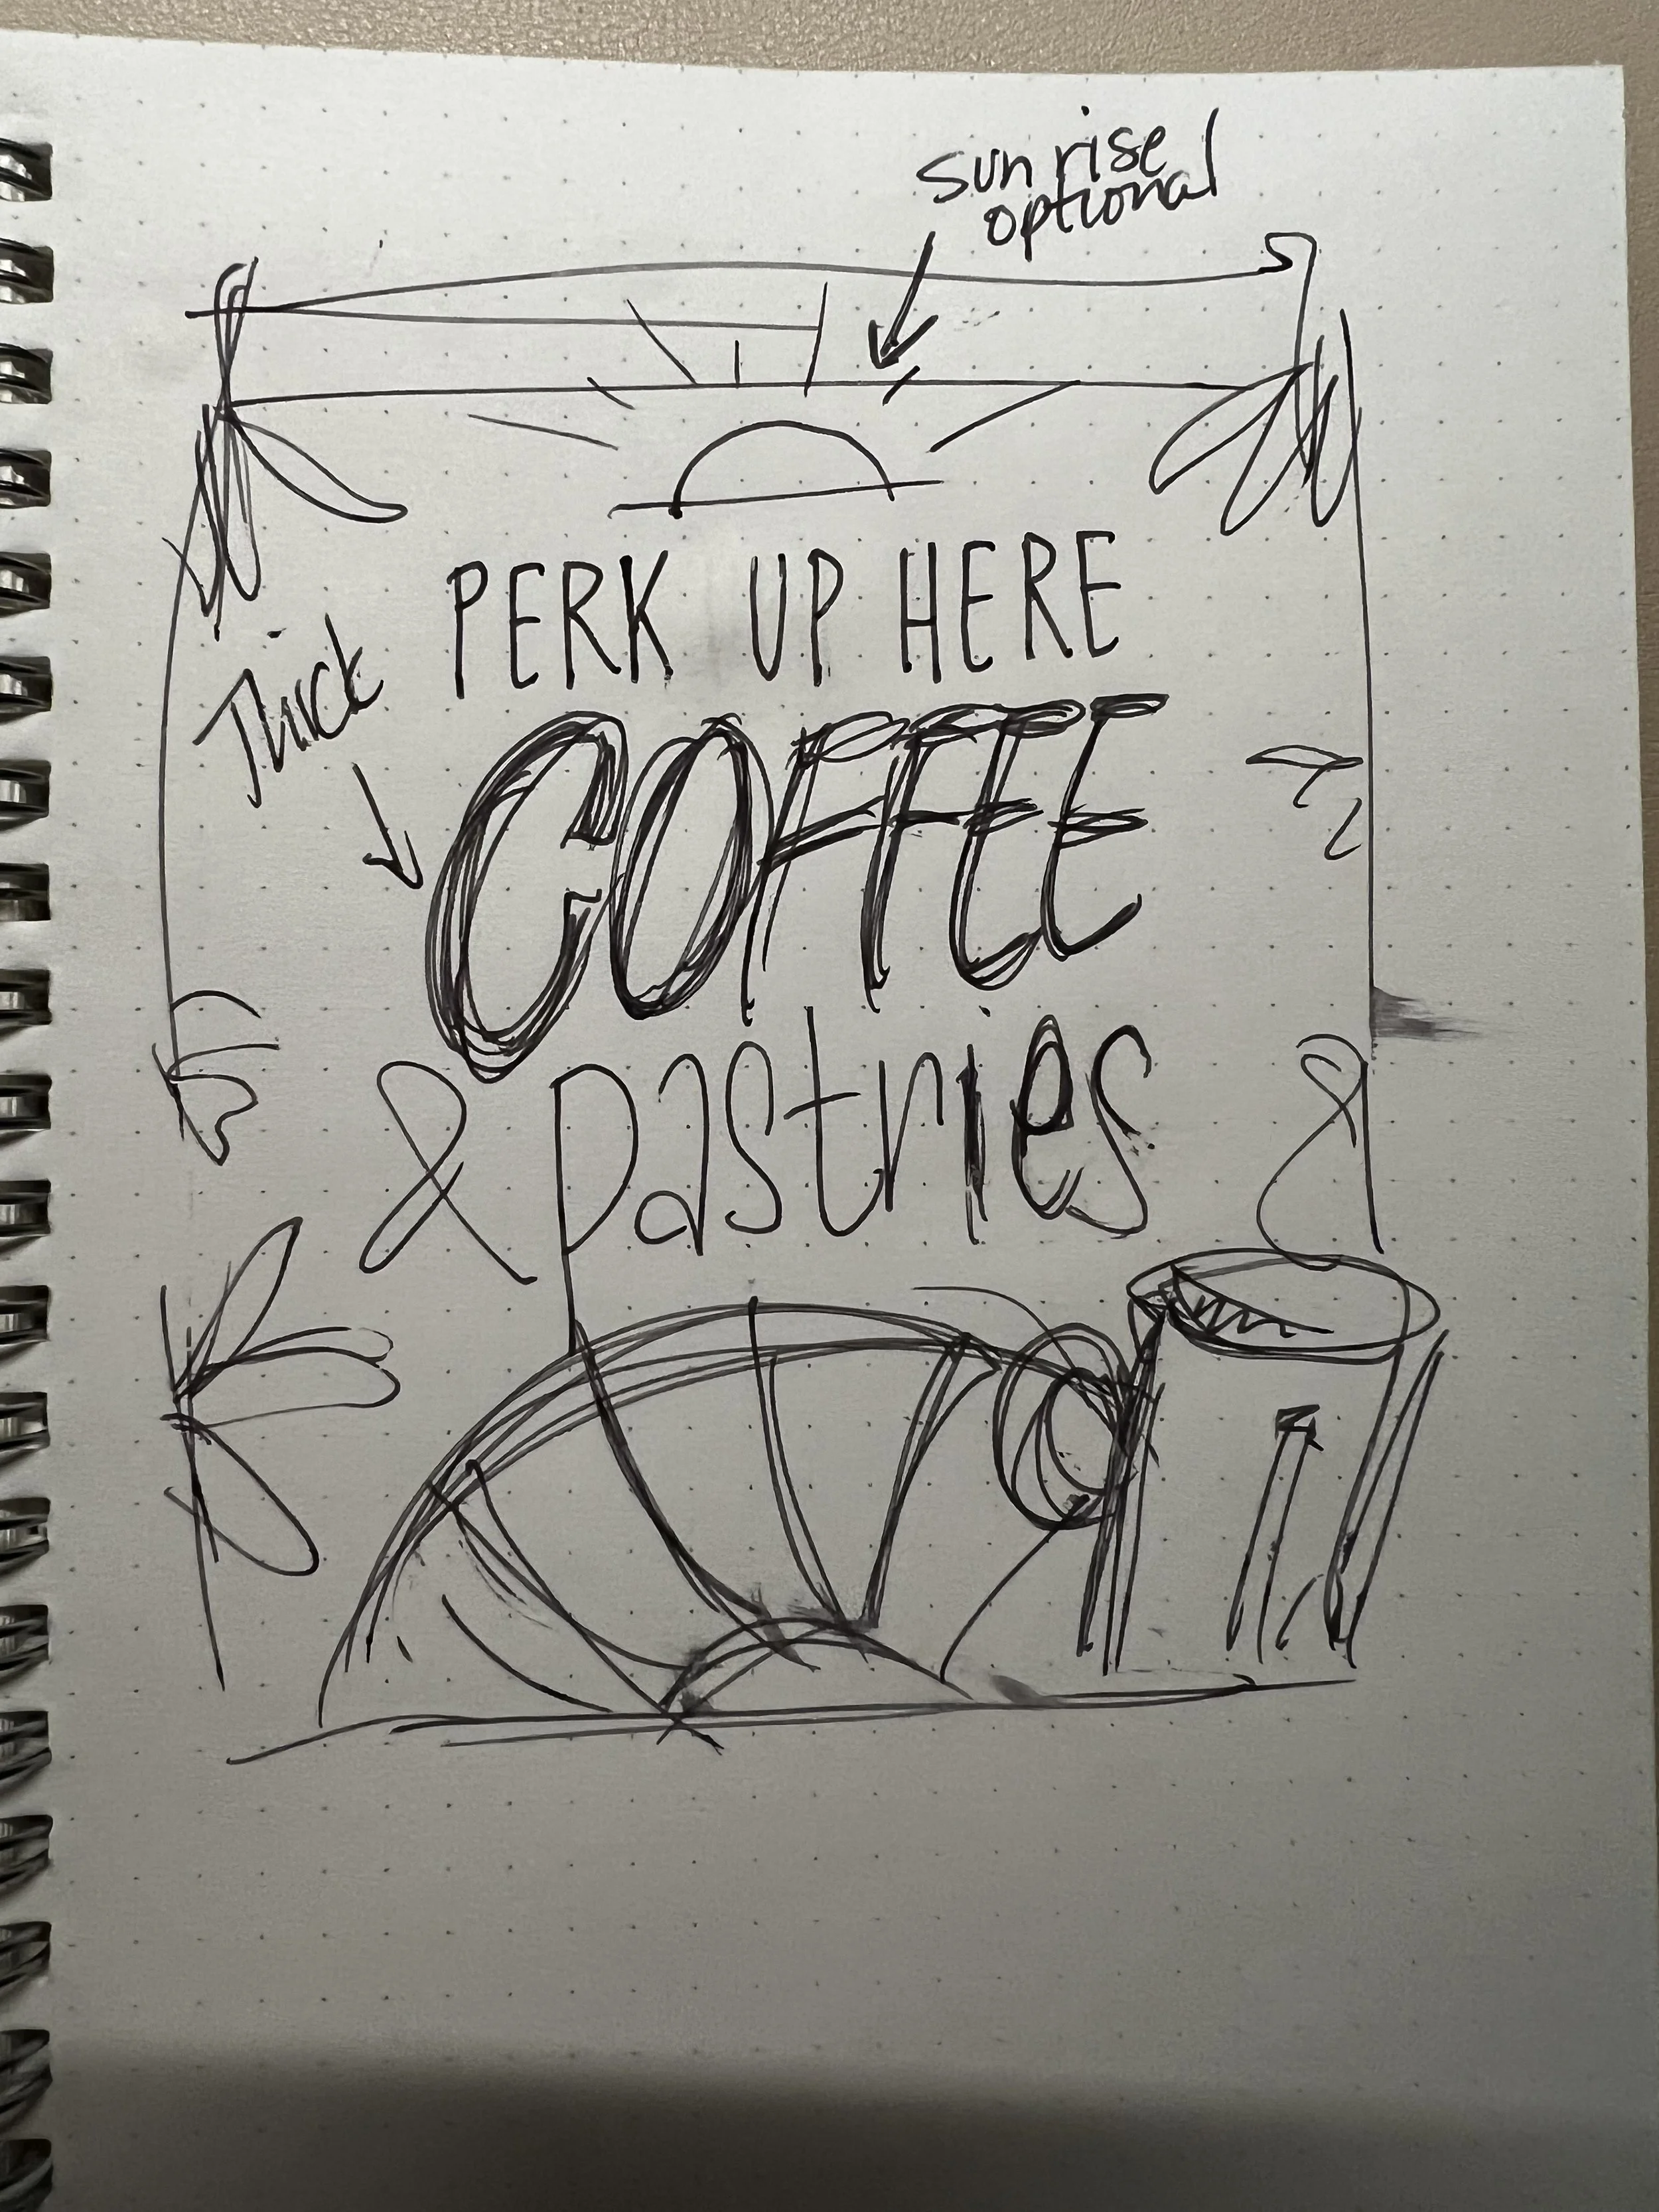 sunrise
optional
PERK UP HERE
Thick
COFFEE
& pastries &